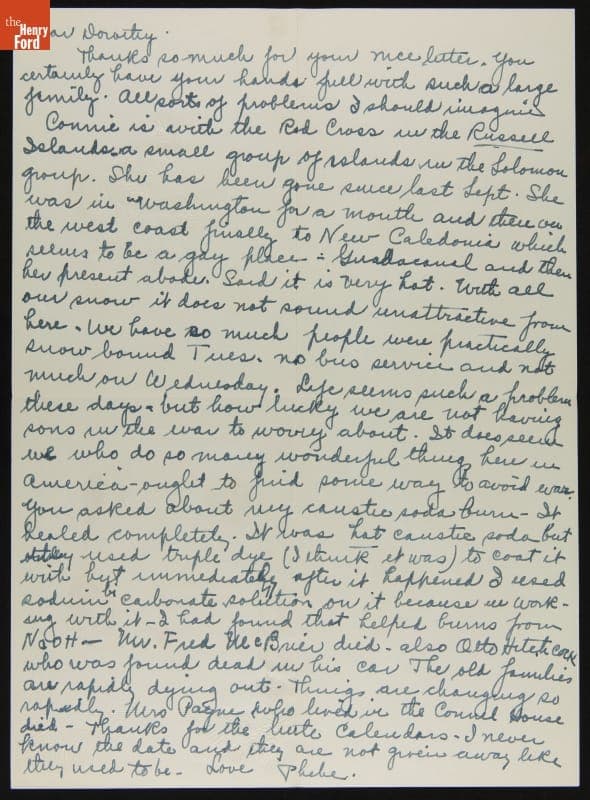 the
Henry
Ford
Dorothy.
Thanks so much for your nice letter. You
certainly have your hands full with such a large
family. All sorts of problems I should imagine
Connie is with the Red Cross in the Russell
Islands, a small group of islands in the Solomon
group. She has been gone since last Sept. She
was in Washington for a month and then on
the west coast finally to New Caledonia which
seems to be a gay place - Guadacanal and then
her present abode. Said it is very hot. With all
our snow it does not sound unattractive from
here. We have so much people were practically
snow bound Tues. no bus service and not
much on Wednesday. Life seems such a problem
these days - but how lucky we are not having
sons in the war to worry about. It does seem
we who do so many wonderful things here in
America - ought to find some way to avoid war.
You asked about my caustic soda burn - It
healed completely. It was hot caustic soda but
used triple dye (I think it was) to coat it
with but immediately after it happened I used
sodium bi carbonate solution on it because in work-
ing with it - I had found that helped burns from
NaOH - Mr. Fred McBrier died - also Otto Hitchcock
who was found dead in his car The old families
are rapidly dying out. Things are changing so
rapidly. Mrs Payne who lived in the Connel House
died - Thanks for the little Calendars - I never
know the date and they are not given away like
they used to be - Love Phebe.